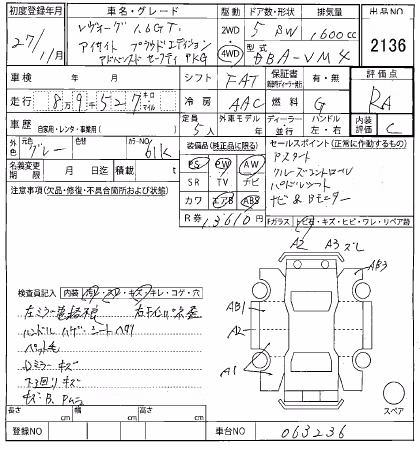 初度登録年月 車名・グレード 駆動 ドア数・形状 排気量 出品NO
27/11月 レヴォーグ 1.6GT 2WD 5 BW 1,600cc 2136
アイサイト プラウドエディション 4WD 型式 DBA-VM4
アドバンスド セーフティ PKG
車検 年 月 シフト FAT 保証書 有・無 評価点
走行 8万9千527 キロ マイル 冷房 AAC 燃料 G RA
車歴 自家用・レンタ・事業用( ) 定員 5人 外車モデル 年 ディーラー 並行 ハンドル 左・右 内装評価 C
外色 元色 グレー 色替 カラーNO 61K
装備品(純正品に限る) セールスポイント(正常に動作するもの)
名義変更期限 月 日迄 積載 t
PS PW AW アスタート
SR TV ナビ クルーズコントロール
カワ エアB ABS パドルシフト
ナビ&Bモニター
R券 13610円
注意事項(欠品・修復・不具合箇所および状態)
Fガラス トビ石・キズ・ヒビ・ワレ・リペア跡
A2 A3 ズレ
AB3
AB1
A2
A1
検査員記入 内装 汚レ・スレ・キズ・キレ・コゲ・穴
左ミラー
ハンドル ハゲ シート ヘタリ
ペット毛
Dミラー キズ
下回り キズ
スペア
長さ cm 幅 cm 高さ cm
登録NO 車台NO 063236